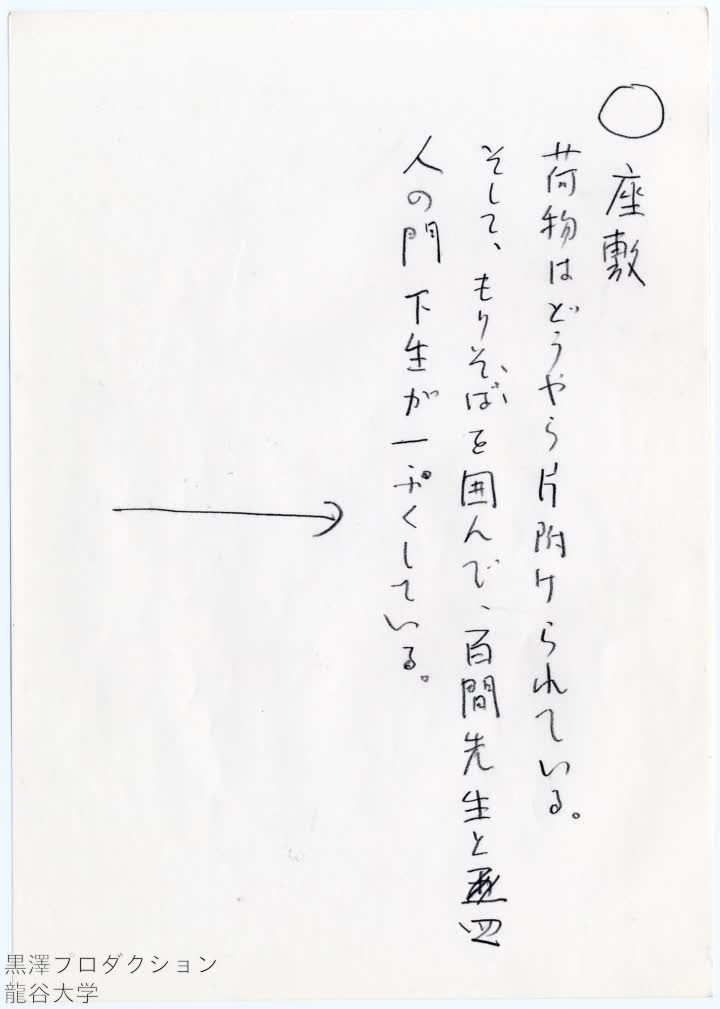 ○座敷
荷物はどうやら片附けられている。
そして、もりそばを囲んで、百間先生と四
人の門下生が一ぷくしている。
黒澤プロダクション
龍谷大学